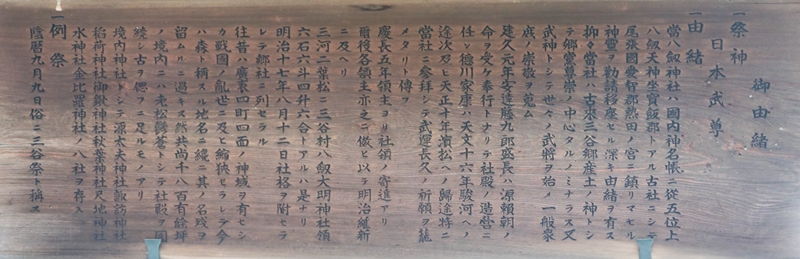 御由緒
一祭神
日本武尊
一由緒
當八劔神社ハ國内神名帳ニ從五位上
八劔天神坐寶飯郡トアル古社ニシテ
尾張國愛智郡熱田ノ宮ニ鎮リマセル
神靈ヲ勧請移座セル深キ由緒ヲ有ス
抑々當社ハ古来三谷郷産土ノ神トシ
テ郷黨崇ノ中心タルノミナラズ又
武神トシテ世々ノ武將ヲ始ノ一般衆
庶ノ崇敬ヲ蒐ム
建久元年安達藤九郎盛長ハ源頼朝ノ
命ヲ受ケ奉行トナリテ社殿ノ造営ニ
任シ徳川家康ハ天文十六年駿河ヘノ
途次及ヒ天正十年濱松ヘノ歸途特ニ
當社ニ参拜シテ武運長久ノ祈願ヲ籠
メタリト傳フ
慶長五年領主ヨリ社領ノ寄進アリ
爾後各領主亦之ニ倣ヒ以テ明治維新
ニ及ヘリ
三河二葉松ニ三谷村八劔大明神社領
六石六斗四升六合トアルハ是ナリ
明治十七年八月十二日社格ヲ附セラ
レテ郷社ニ列セラル
往昔ハ廣袤四町四面ノ神域ヲ有セシ
カ戰國ノ亂世ニ及ヒ縮狹セラレテ今
ハ森ト稱スル地名ニ纔ニ其ノ名殘ヲ
留ムルニ過キス然共尚千八百有餘坪
ノ境内ニハ老松鬱蒼トシテ社殿ヲ圍
繞シ古ヲ偲フニ足ルモノアリ
境内神社トシテ源太夫神社諏訪神社
稲荷神社御嶽神社秋葉神社天地神社
水神社金比羅神社ノ八社ヲ存ス
一例祭
陰暦九月九日俗ニ三谷祭ト稱ス